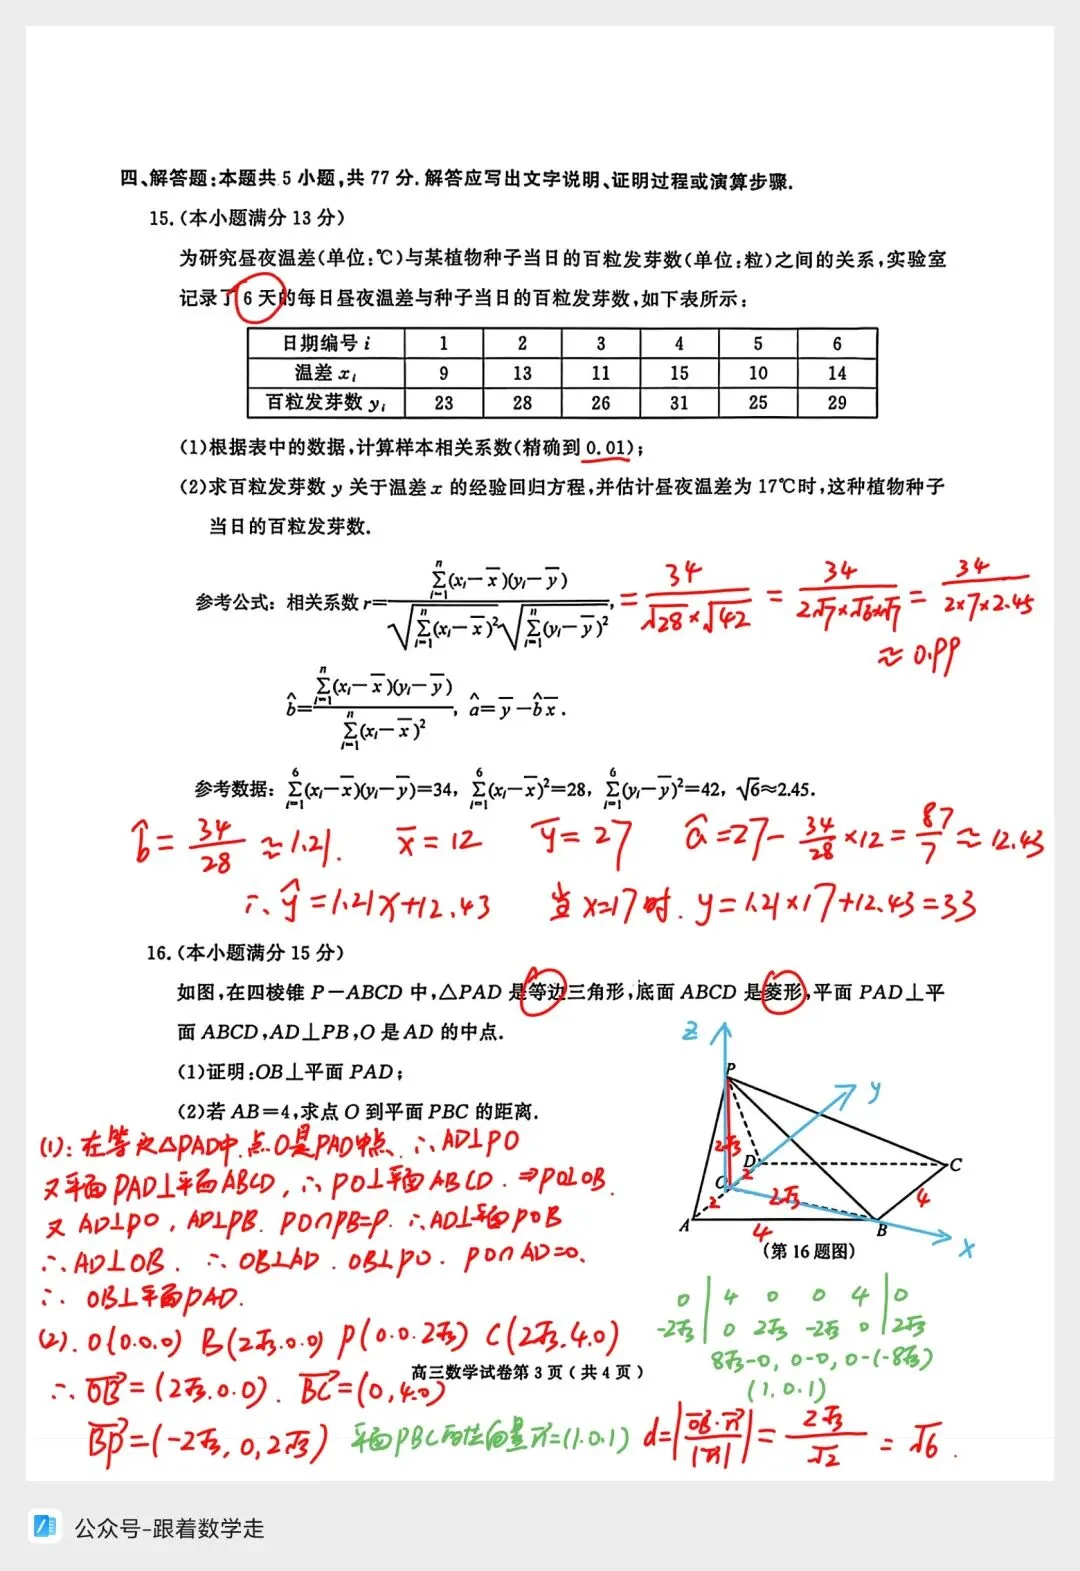 四、解答题:本题共5小题,共77分.解答应写出文字说明、证明过程或演算步骤.
15.(本小题满分13分)
为研究昼夜温差(单位:℃)与某植物种子当日的百粒发芽数(单位:粒)之间的关系,实验室
记录了6天的每日昼夜温差与种子当日的百粒发芽数,如下表所示:
日期编号 i 1 2 3 4 5 6
温差 xᵢ 9 13 11 15 10 14
百粒发芽数 yᵢ 23 28 26 31 25 29
(1)根据表中的数据,计算样本相关系数(精确到0.01);
(2)求百粒发芽数 y 关于温差 x 的经验回归方程,并估计昼夜温差为17℃时,这种植物种子
当日的百粒发芽数.
参考公式: 相关系数 r=∑ⁿᵢ₌₁(xᵢ-x̄)(yᵢ-ȳ)/(√∑ⁿᵢ₌₁(xᵢ-x̄)²√∑ⁿᵢ₌₁(yᵢ-ȳ)²), =34/(√28×√42) = 34/(2√7×√6×√7) = 34/(2×7×2.45)
≈0.99
b̂=∑ⁿᵢ₌₁(xᵢ-x̄)(yᵢ-ȳ)/∑ⁿᵢ₌₁(xᵢ-x̄)², â=ȳ-b̂x̄.
参考数据: ∑⁶ᵢ₌₁(xᵢ-x̄)(yᵢ-ȳ)=34, ∑⁶ᵢ₌₁(xᵢ-x̄)²=28, ∑⁶ᵢ₌₁(yᵢ-ȳ)²=42, √6≈2.45.
b̂=34/28≈1.21. x̄=12 ȳ=27 â=27-34/28×12=87/7≈12.43
∴ŷ=1.21x+12.43 当x=17时. y=1.21×17+12.43=33
16.(本小题满分15分)
如图,在四棱锥 P-ABCD 中,△PAD 是等边三角形,底面 ABCD 是菱形,平面 PAD⊥平
面 ABCD,AD⊥PB,O 是 AD 的中点.
(1)证明:OB⊥平面 PAD;
(2)若 AB=4,求点 O 到平面 PBC 的距离.
(1): 在等边△PAD中.点O是PAD中点.∴AD⊥PO
又平面PAD⊥平面ABCD,∴PO⊥平面ABCD.⇒PO⊥OB.
又 AD⊥PO,AD⊥PB. PO∩PB=P.∴AD⊥平面POB
∴AD⊥OB. ∴OB⊥AD.OB⊥PO. PO∩AD=O.
∴ OB⊥平面PAD.
z
P
y
2√3
D
C
O
2
2
2√3
4
A
4
B
x
(第16题图)
(2).O(0.0.0) B(2√3.0.0) P(0.0.2√3) C(2√3.4.0)
0 4 0 0 4 0
-2√3 0 2√3 -2√3 0 2√3
8√3-0, 0-0, 0-(-8√3)
(1.0.1)
高三数学试卷第3页(共4页)
∴OB=(2√3.0.0). BC=(0,4.0)
BP=(-2√3,0,2√3) 平面PBC的法向量n=(1.0.1) d=|OB·n/|n||=2√3/√2=√6.
公众号-跟着数学走